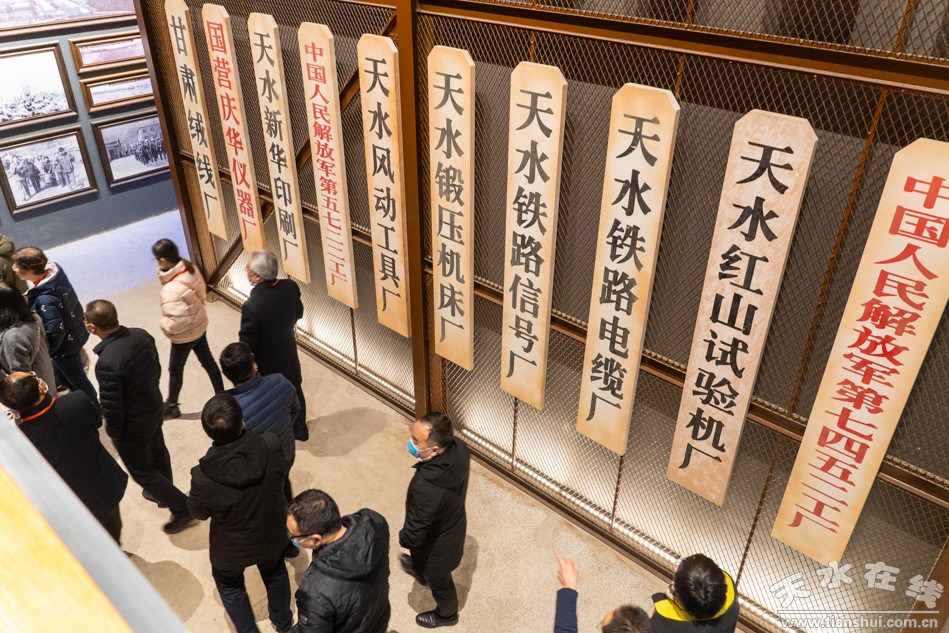 甘肃绒线厂
国营庆华仪器厂
天水新华印刷厂
中国人民解放军第五七二二工厂
天水风动工具厂
天水锻压机床厂
天水铁路信号厂
天水铁路电缆厂
天水红山试验机厂
中国人民解放军第七四五二工厂
天水在线
www.tianshui.com.cn